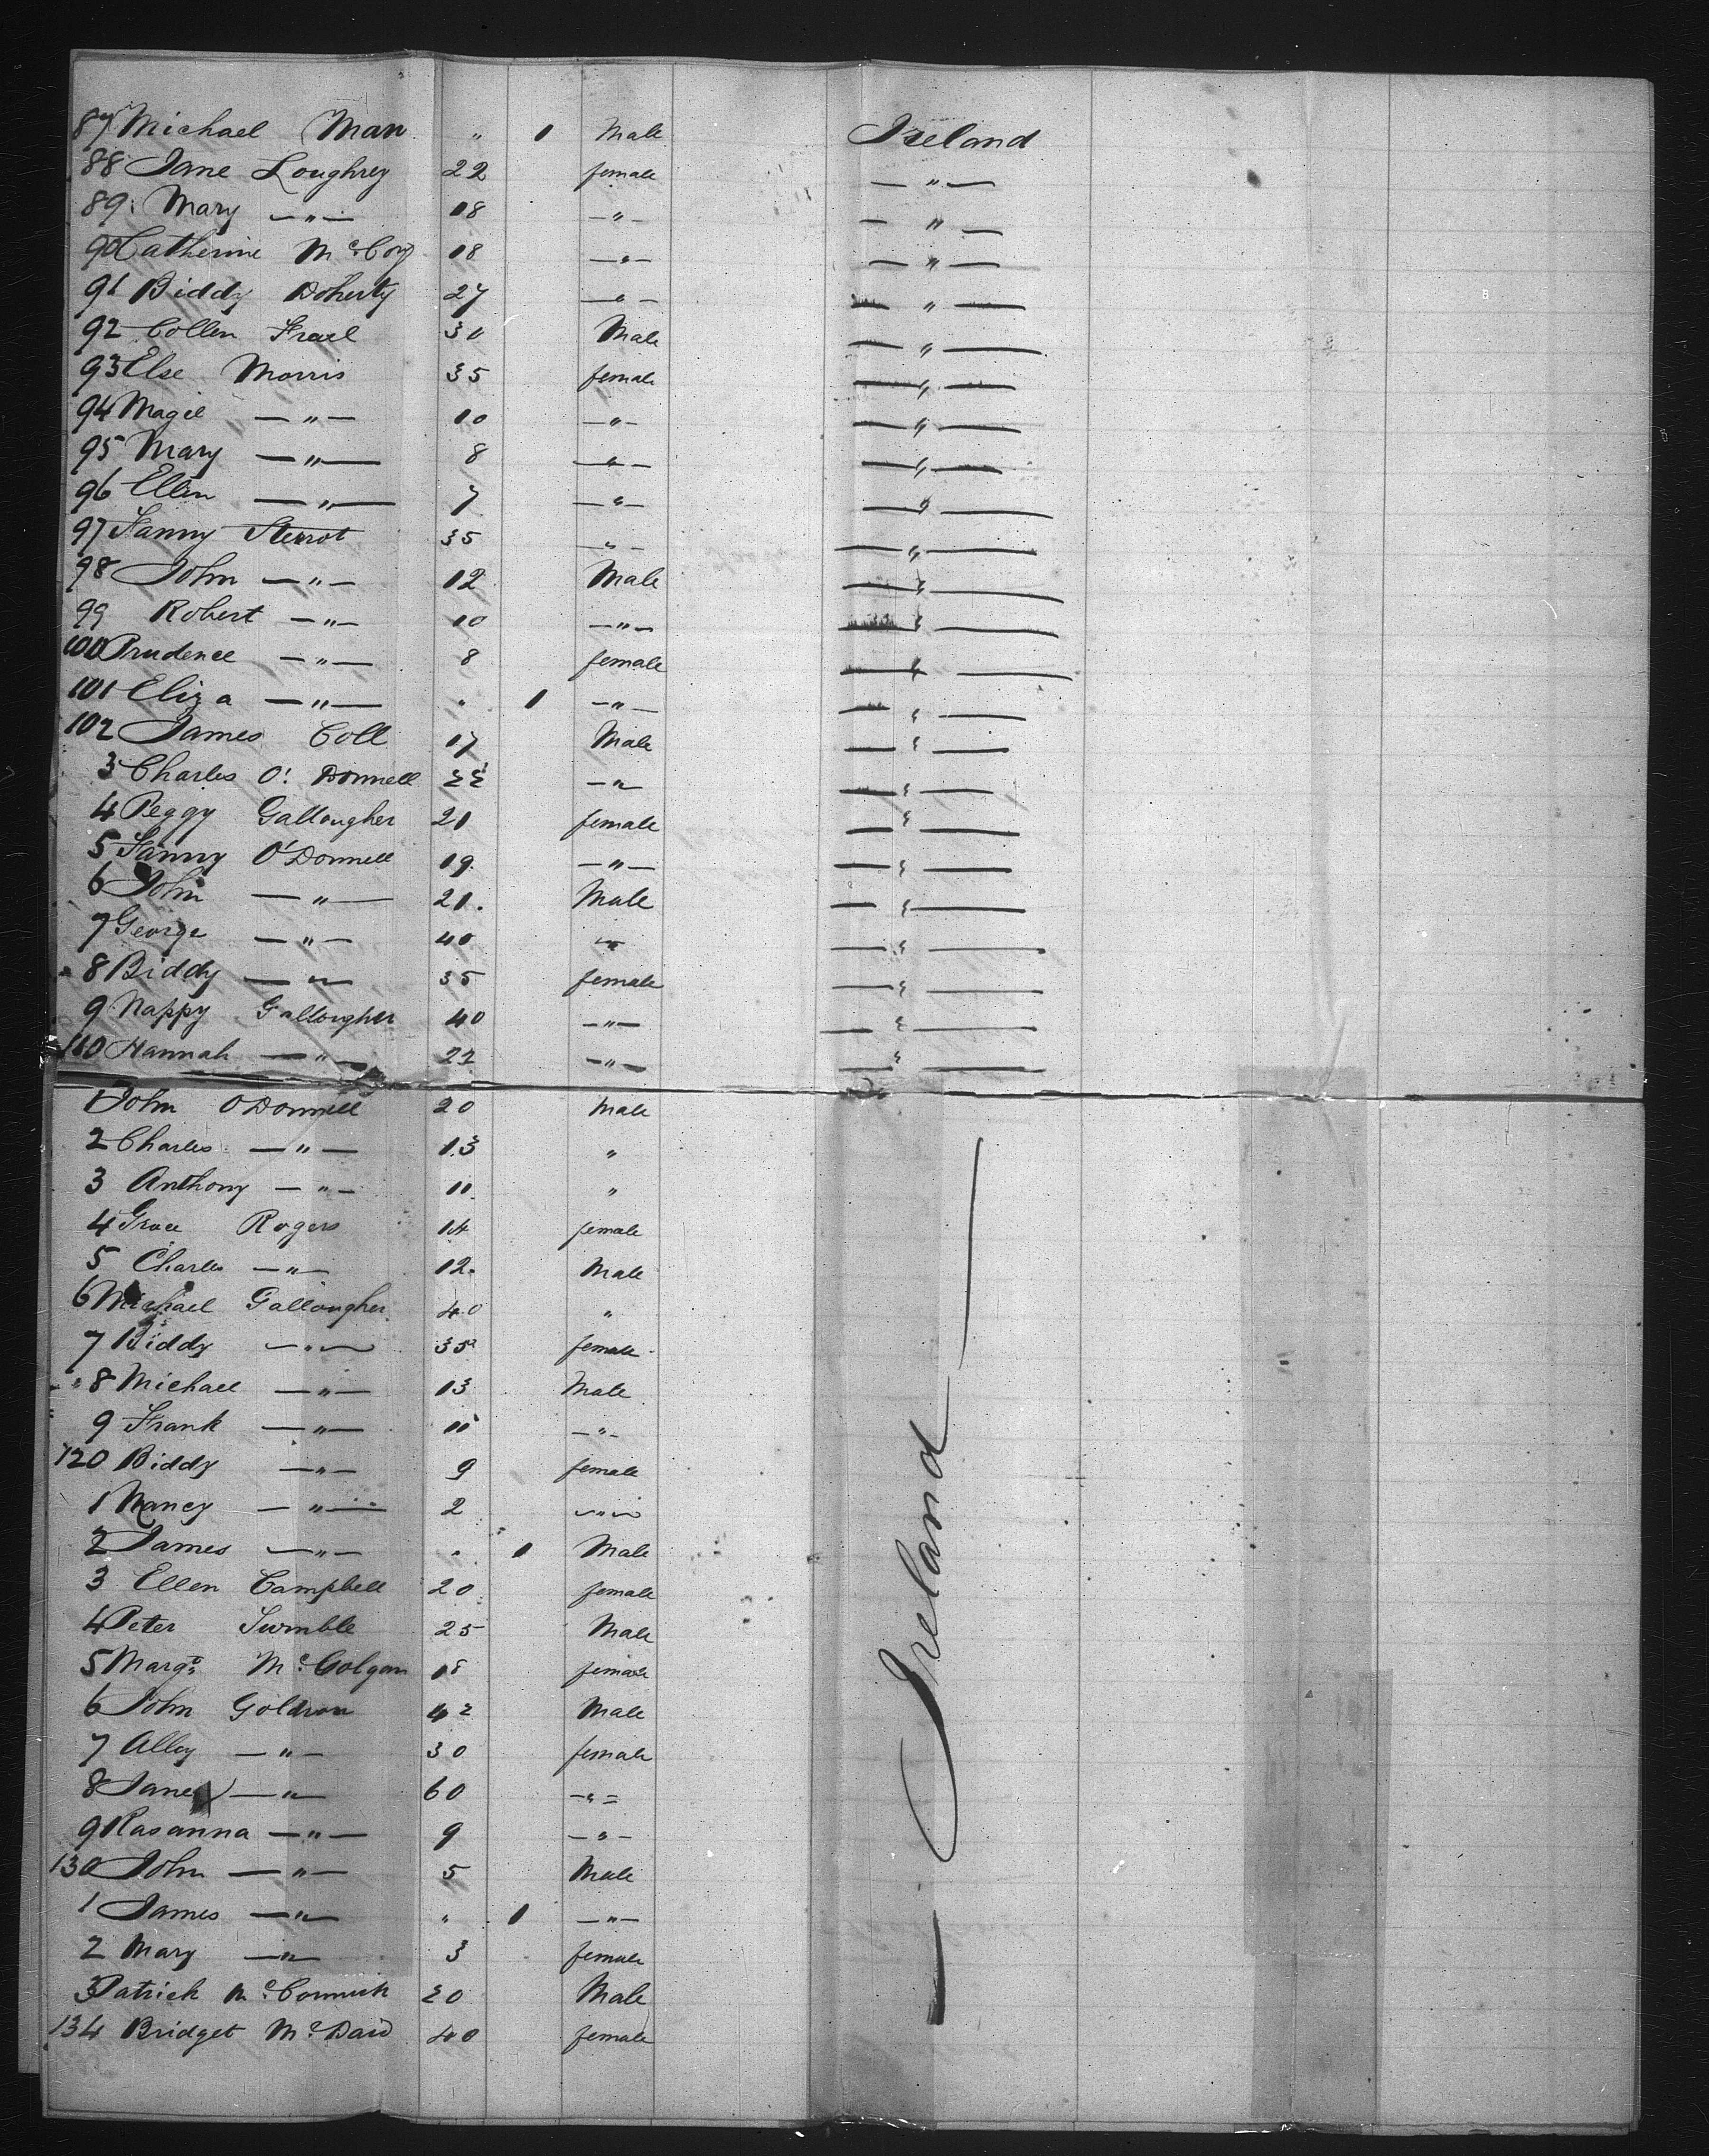 87 Michael Man " 1 Male Ireland
88 Jane Loughrey 22 female — " —
89 Mary — " — 18 — " — — " —
90 Catherine Mc Coy 18 — " — — " —
91 Biddy Doherty 27 — " — — " —
92 Collen 30 Male — " —
93 Else Morris 35 female — " —
94 Magie — " — 10 — " — — " —
95 Mary — " — 8 — " — — " —
96 Ellen — " — 7 — " — — " —
97 Fanny Sterrot 35 — " — — " —
98 John — " — 12 Male — " —
99 Robert — " — 10 — " — — " —
100 Prudence — " — 8 female — " —
101 Eliza — " — " 1 — " — — " —
102 James Coll 17 Male — " —
3 Charles O' Donnell — " — — " —
4 Peggy Gallougher 21 female — " —
5 Fanny O'Donnell 19. — " — — " —
6 John — " — 21. Male — " —
7 George — " — 40 — " — — " —
8 Biddy — " — 35 female — " —
9 Nappy Gallougher 40 — " — — " —
110 Hannah — " — 22 — " — — " —
1 John O Donnell 20 Male
2 Charles — " — 13 "
3 Anthony — " — 11 "
4 Grace Rogers 14 female
5 Charles — " — 12. Male
6 Michael Gallougher 40 "
7 Biddy — " — 35 female
8 Michael — " — 13 Male
9 Frank — " — 11 — " —
120 Biddy — " — 9 female
1 Nancy — " — 2 — " —
2 James — " — " 1 Male
3 Ellen Campbell 20 female
4 Peter 25 Male
5 Margt Mc Colgan 18 female
6 John Goldron 42 Male
7 Alley — " — 30 female
8 Jane — " — 60 — " —
9 Rasanna — " — 9 — " —
130 John — " — 5 Male
1 James — " — " 1 — " —
2 Mary — " — 3 female
3 Patrick Mc Cormick 20 Male
134 Bridget Mc Daid 40 female
— Ireland —